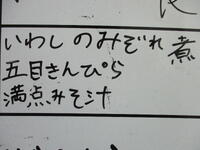 いわしのみぞれ煮
五目きんぴら
満点みそ汁